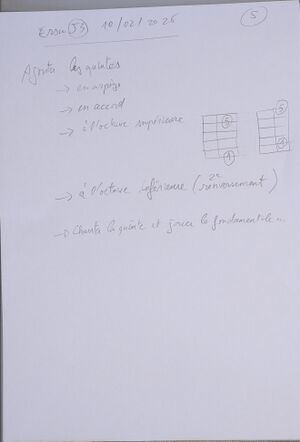 Ersan (53) 10/02/2026
(5)
Ajouter les quintes
→ en arpège
→ en accord
→ à l'octave supérieure
5
1
5
→ à l'octave inférieure (2e renversement)
→ Chanter la quinte et jouer la fondamentale...